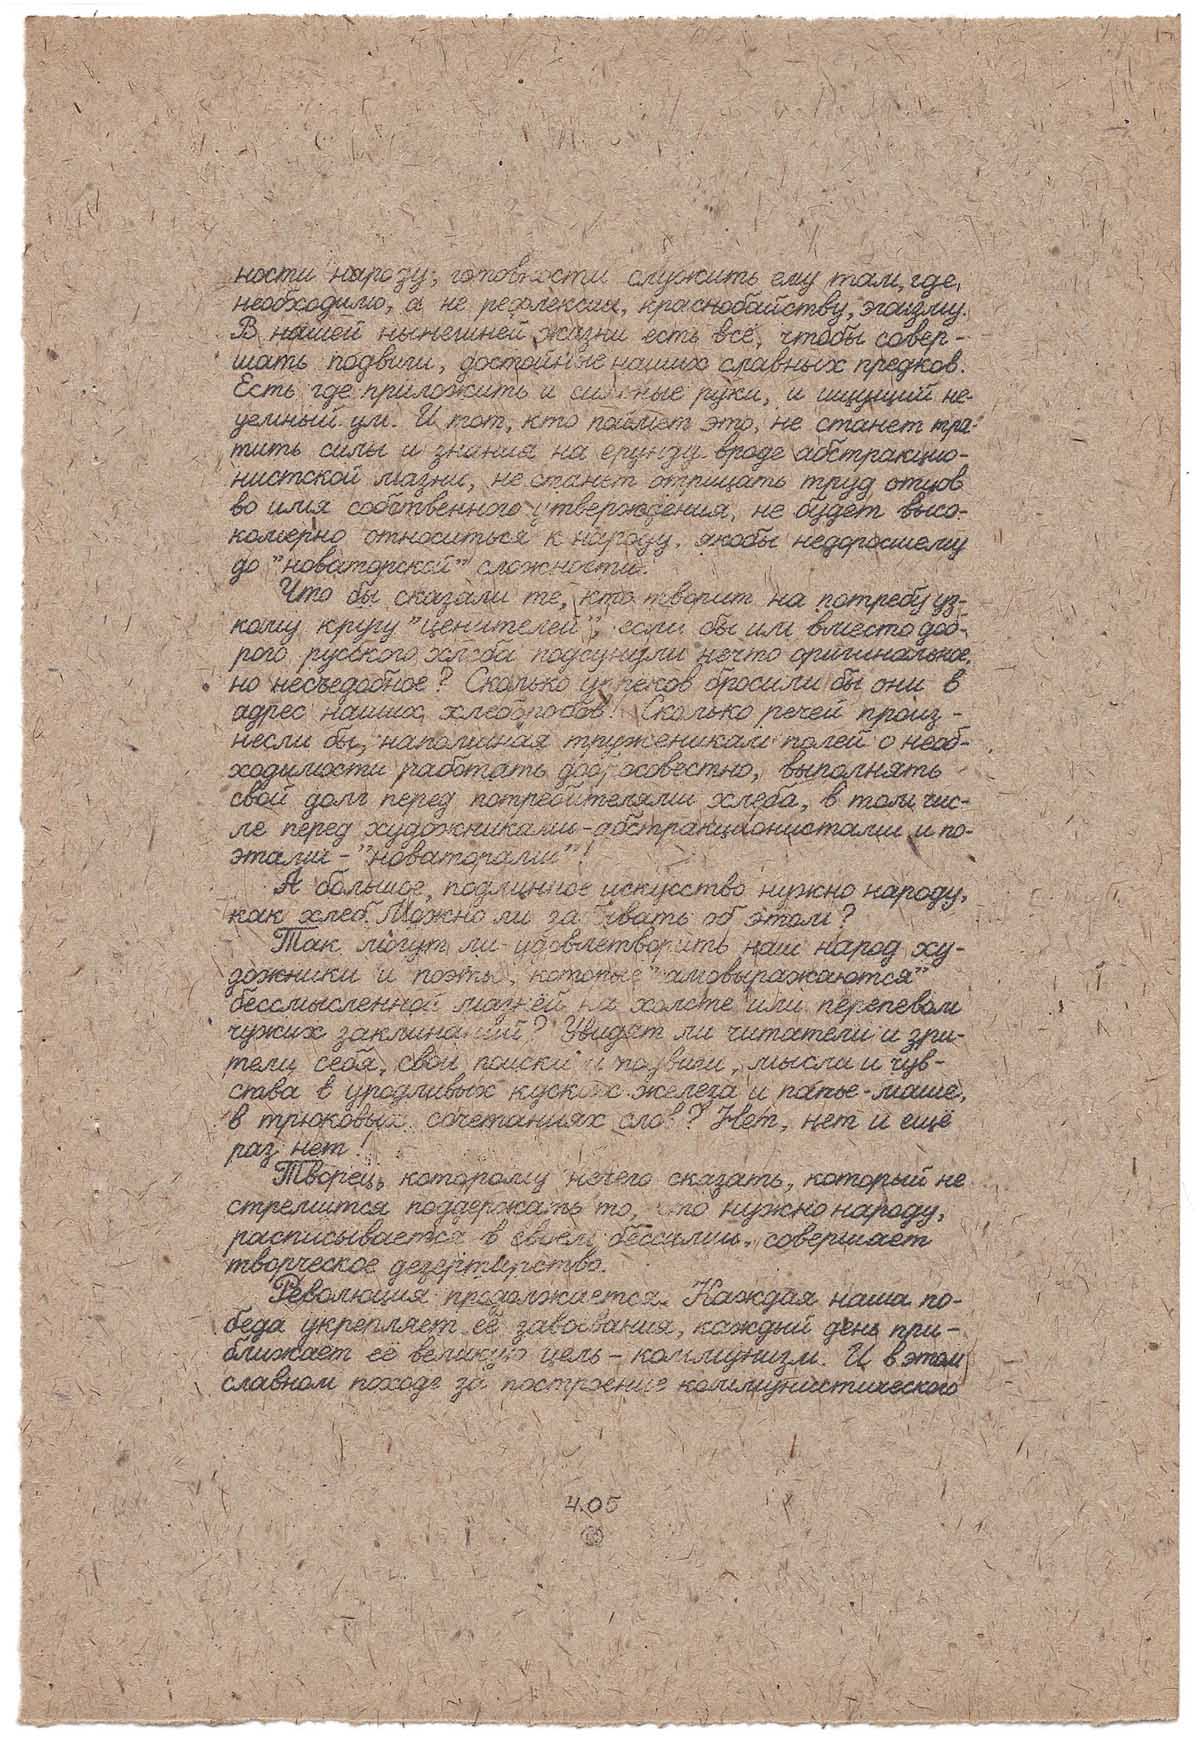 ности народу, готовности служить ему там, где
необходимо, а не рефлексии, краснобайству, эгоизму.
В нашей нынешней жизни есть всё, чтобы совер-
шать подвиги, достойные наших славных предков.
Есть где приложить и сильные руки, и ищущий не-
уемный ум. И тот, кто поймет это, не станет тра-
тить силы и знания на ерунду вроде абстракцио-
нистской мазни, не станет отрицать труд отцов
во имя собственного утверждения, не будет высо-
комерно относиться к народу, якобы недоросшему
до "новаторской" сложности.
Что бы сказали те, кто творит на потребу уз-
кому кругу "ценителей", если бы им вместо доб-
рого русского хлеба подсунули нечто оригинальное,
но несъедобное? Сколько упреков бросили бы они в
адрес наших хлеборобов! Сколько речей произ-
несли бы, напоминая труженикам полей о необ-
ходимости работать добросовестно, выполнять
свой долг перед потребителями хлеба, в том чис-
ле перед художниками-абстракционистами и по-
этами-"новаторами"!
А большое, подлинное искусство нужно народу,
как хлеб. Можно ли забывать об этом?
Так могут ли удовлетворить наш народ ху-
дожники и поэты, которые "самовыражаются"
бессмысленной мазнёй на холсте или перепевом
чужих заклинаний? Увидят ли читатели и зри-
тели себя, свои поиски и подвиги, мысли и чув-
ства в уродливых кусках железа и папье-маше,
в трюковых сочетаниях слов? Нет, нет и ещё
раз нет!
Творец, которому нечего сказать, который не
стремится поддержать то, что нужно народу,
расписывается в своем бессилии, совершает
творческое дезертирство.
Революция продолжается. Каждая наша по-
беда укрепляет её завоевания, каждый день при-
ближает её великую цель - коммунизм. И в этом
славном походе за построение коммунистического
4.05